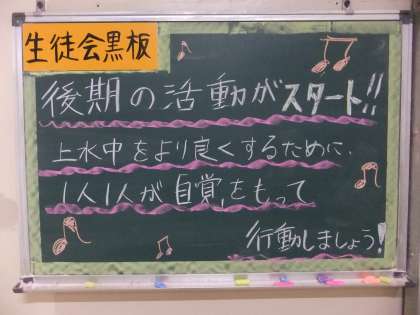 生徒会黒板
後期の活動がスタート!!
上水中をより良くするために、
1人1人が自覚をもって
行動しましょう!